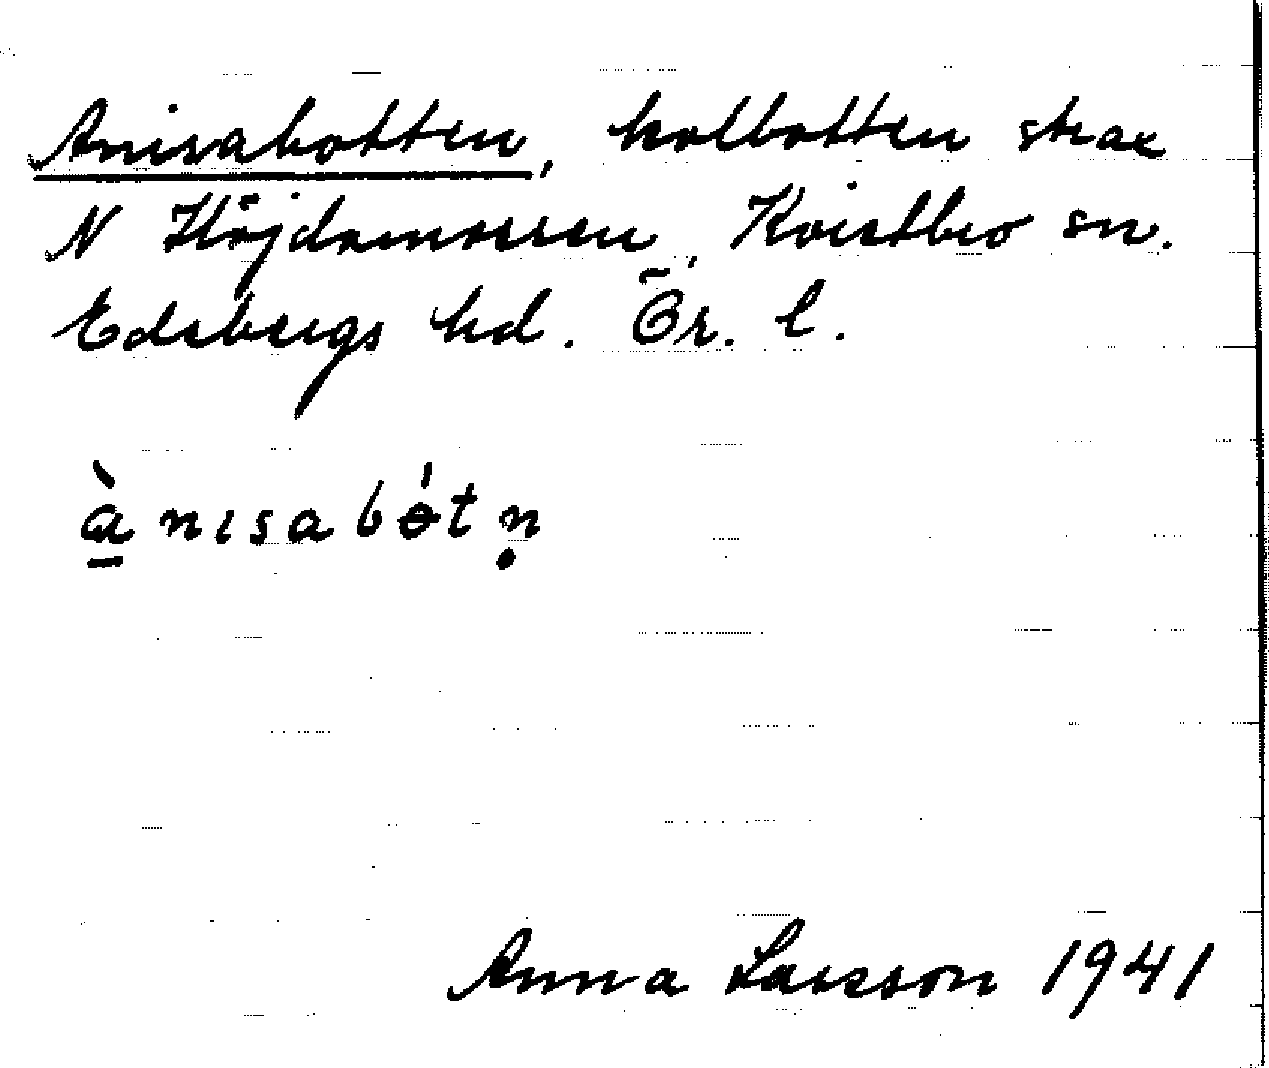 Anisabotten, kolbotten strax
N Höjdamossen, Kvistbro sn.
Edsbergs hd. Ör. l.
ànisabótṇ
Anna Larsson 1941